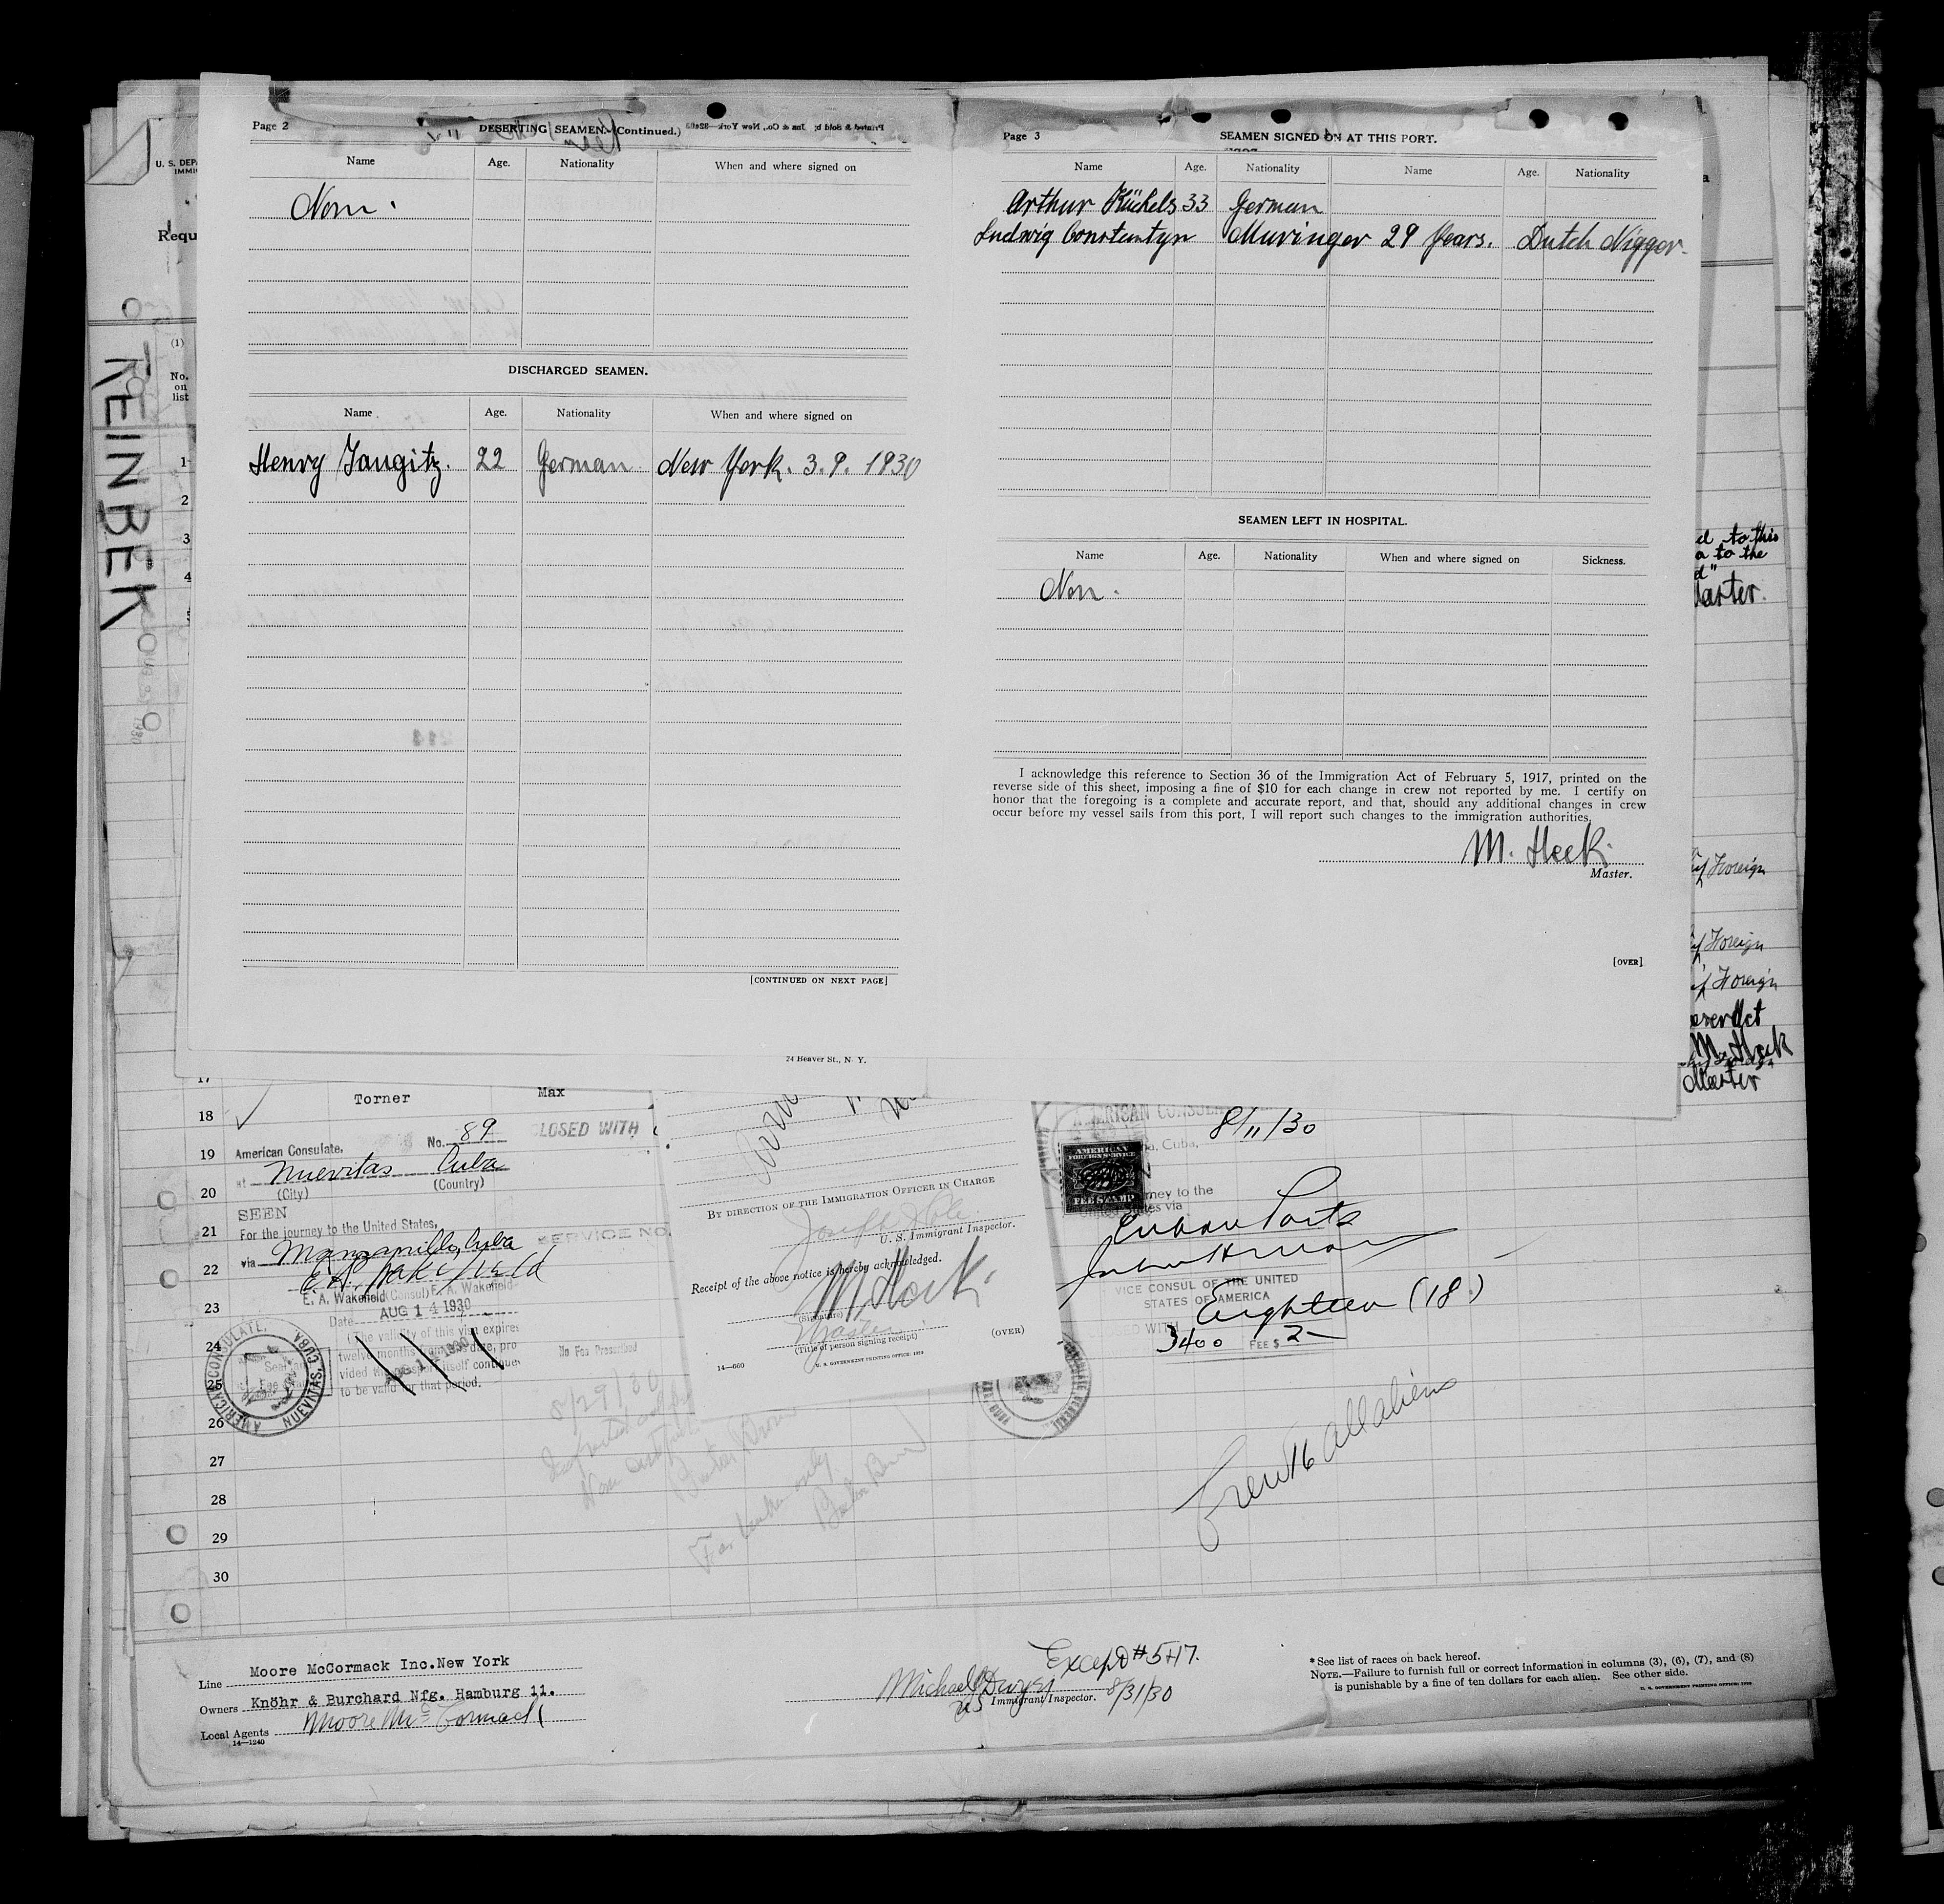 Page 2
DESERTING SEAMEN. (Continued.)
Name Age. Nationality When and where signed on
Non.
DISCHARGED SEAMEN.
Name Age. Nationality When and where signed on
Henry Jaugitz. 22 German New York. 3. 9. 1930
[CONTINUED ON NEXT PAGE]
Page 3
SEAMEN SIGNED ON AT THIS PORT.
Name Age. Nationality Name Age. Nationality
Arthur Küchels 33 German
Ludwig Constantyn Muringer 29 Years. Dutch Nigger.
SEAMEN LEFT IN HOSPITAL.
Name Age. Nationality When and where signed on Sickness.
Non.
I acknowledge this reference to Section 36 of the Immigration Act of February 5, 1917, printed on the
reverse side of this sheet, imposing a fine of $10 for each change in crew not reported by me. I certify on
honor that the foregoing is a complete and accurate report, and that, should any additional changes in crew
occur before my vessel sails from this port, I will report such changes to the immigration authorities.
M. Heck
Master.
[OVER]
24 Beaver St., N. Y.
U. S. DEP
IMMI
Requ
(1)
No.
on
list
1
2
3
4
REINBEK
d to this
a to the
d"
Master.
of Foreign
of Foreign
of Foreign
M. Heck
Master
17
18 Torner Max
19
20
21
22
23
24
25
26
27
28
29
30
American Consulate, No. 89
at Nuevitas Cuba
(City) (Country)
SEEN
For the journey to the United States,
via Manzanillo, Cuba
E. A. Wakefield
E. A. Wakefield (Consul) E. A. Wakefield
Date AUG 14 1930
(The validity of this visa expires
twelve months from this date, pro
vided the passport itself continues
to be valid for that period.
No Fee Prescribed
AMERICAN CONSULATE, NUEVITAS, CUBA
LOSED WITH
SERVICE NO.
BY DIRECTION OF THE IMMIGRATION OFFICER IN CHARGE
U. S. Immigrant Inspector.
Receipt of the above notice is hereby acknowledged.
M. Heck
(Signature)
Master
(Title of person signing receipt)
(OVER)
14—660
U. S. GOVERNMENT PRINTING OFFICE: 1929
AMERICAN CONSU
a, Cuba,
8/11/30
AMERICAN
FOREIGN SERVICE
FEE STAMP
rney to the
United States via
Cuban Ports
VICE CONSUL OF THE UNITED
STATES OF AMERICA
Eighteen (18)
3400 FEE $ 2—
8/29/30
Crew 16 all aliens
Line Moore McCormack Inc. New York
Owners Knöhr & Burchard Nfg. Hamburg 11.
Local Agents Moore McCormack
14—1240
Except # 5+17.
Michael Dwyer 8/31/30
US Immigrant Inspector.
* See list of races on back hereof.
NOTE.—Failure to furnish full or correct information in columns (3), (6), (7), and (8)
is punishable by a fine of ten dollars for each alien. See other side.
U. S. GOVERNMENT PRINTING OFFICE: 1930